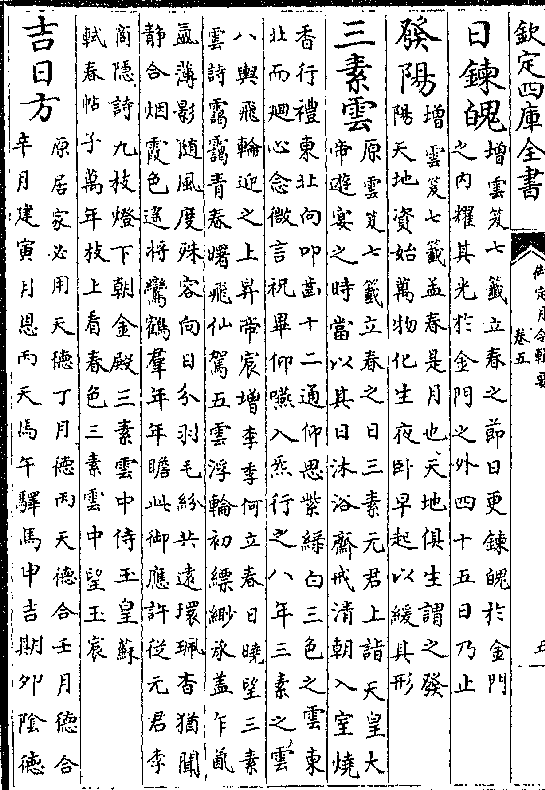 欽定四庫全書
御定月令輯要
卷五
五
日鍊魄增雲笈七籤立春之節日更鍊魄於金門
之内耀其光於金門之外四十五日乃止
發陽增雲笈七籤孟春是月也天地俱生謂之發
陽天地資始萬物化生夜卧早起以緩其形
三素雲原雲笈七籤立春之日三素元君上詣天皇大
帝遊宴之時當以其日沐浴齋戒清朝入室燒
香行禮東北向叩齒十二通仰思紫綠白三色之雲東
北而廻心念微言祝畢仰嚥入炁行之八年三素之雲
八輿飛輪迎之上昇帝宸增李季何立春日曉望三素
雲詩靄靄青春曙飛仙駕五雲浮輪初縹緲承蓋乍氤
氲薄影随風度殊容向日分羽毛紛共遠環珮杳猶聞
静合烟霞色遥將鸞鶴羣年年瞻此御應許從元君李
商隐詩九枝燈下朝金殿三素雲中侍玉皇蘇
軾春帖子萬年枝上看春色三素雲中望玉宸
吉日方原居家必用天德丁月德丙天德合壬月德合
辛月建寅月恩丙天馬午驛馬申吉期夘陰德